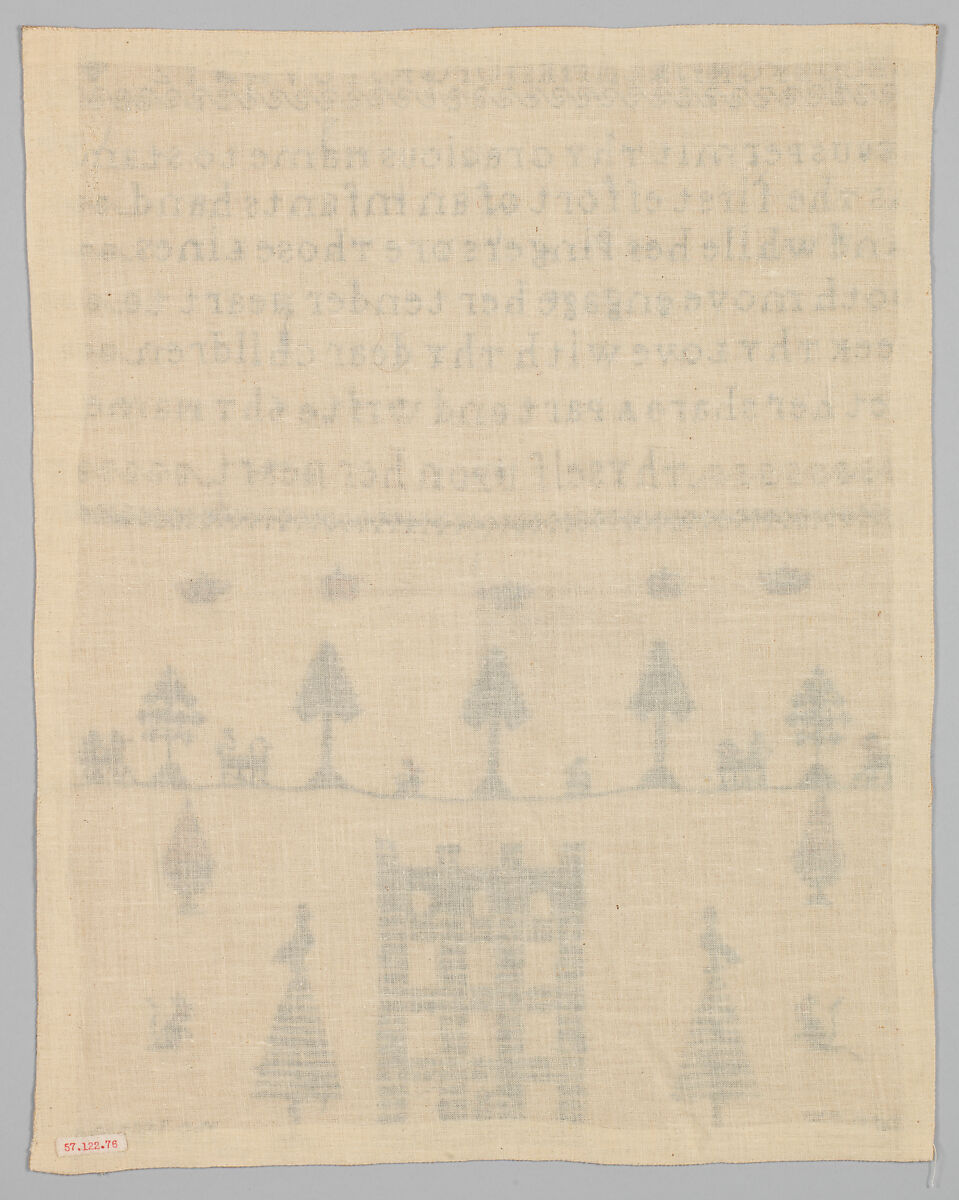 esus Permit thy Gracious name to stand
s the first effort of an infants hand
nd while her fingers ore those lines
oth move engage her tender heart to
eek thy Love with thy dear children
et her share a Part and write thy name
thyself upon her heart
57.122.76